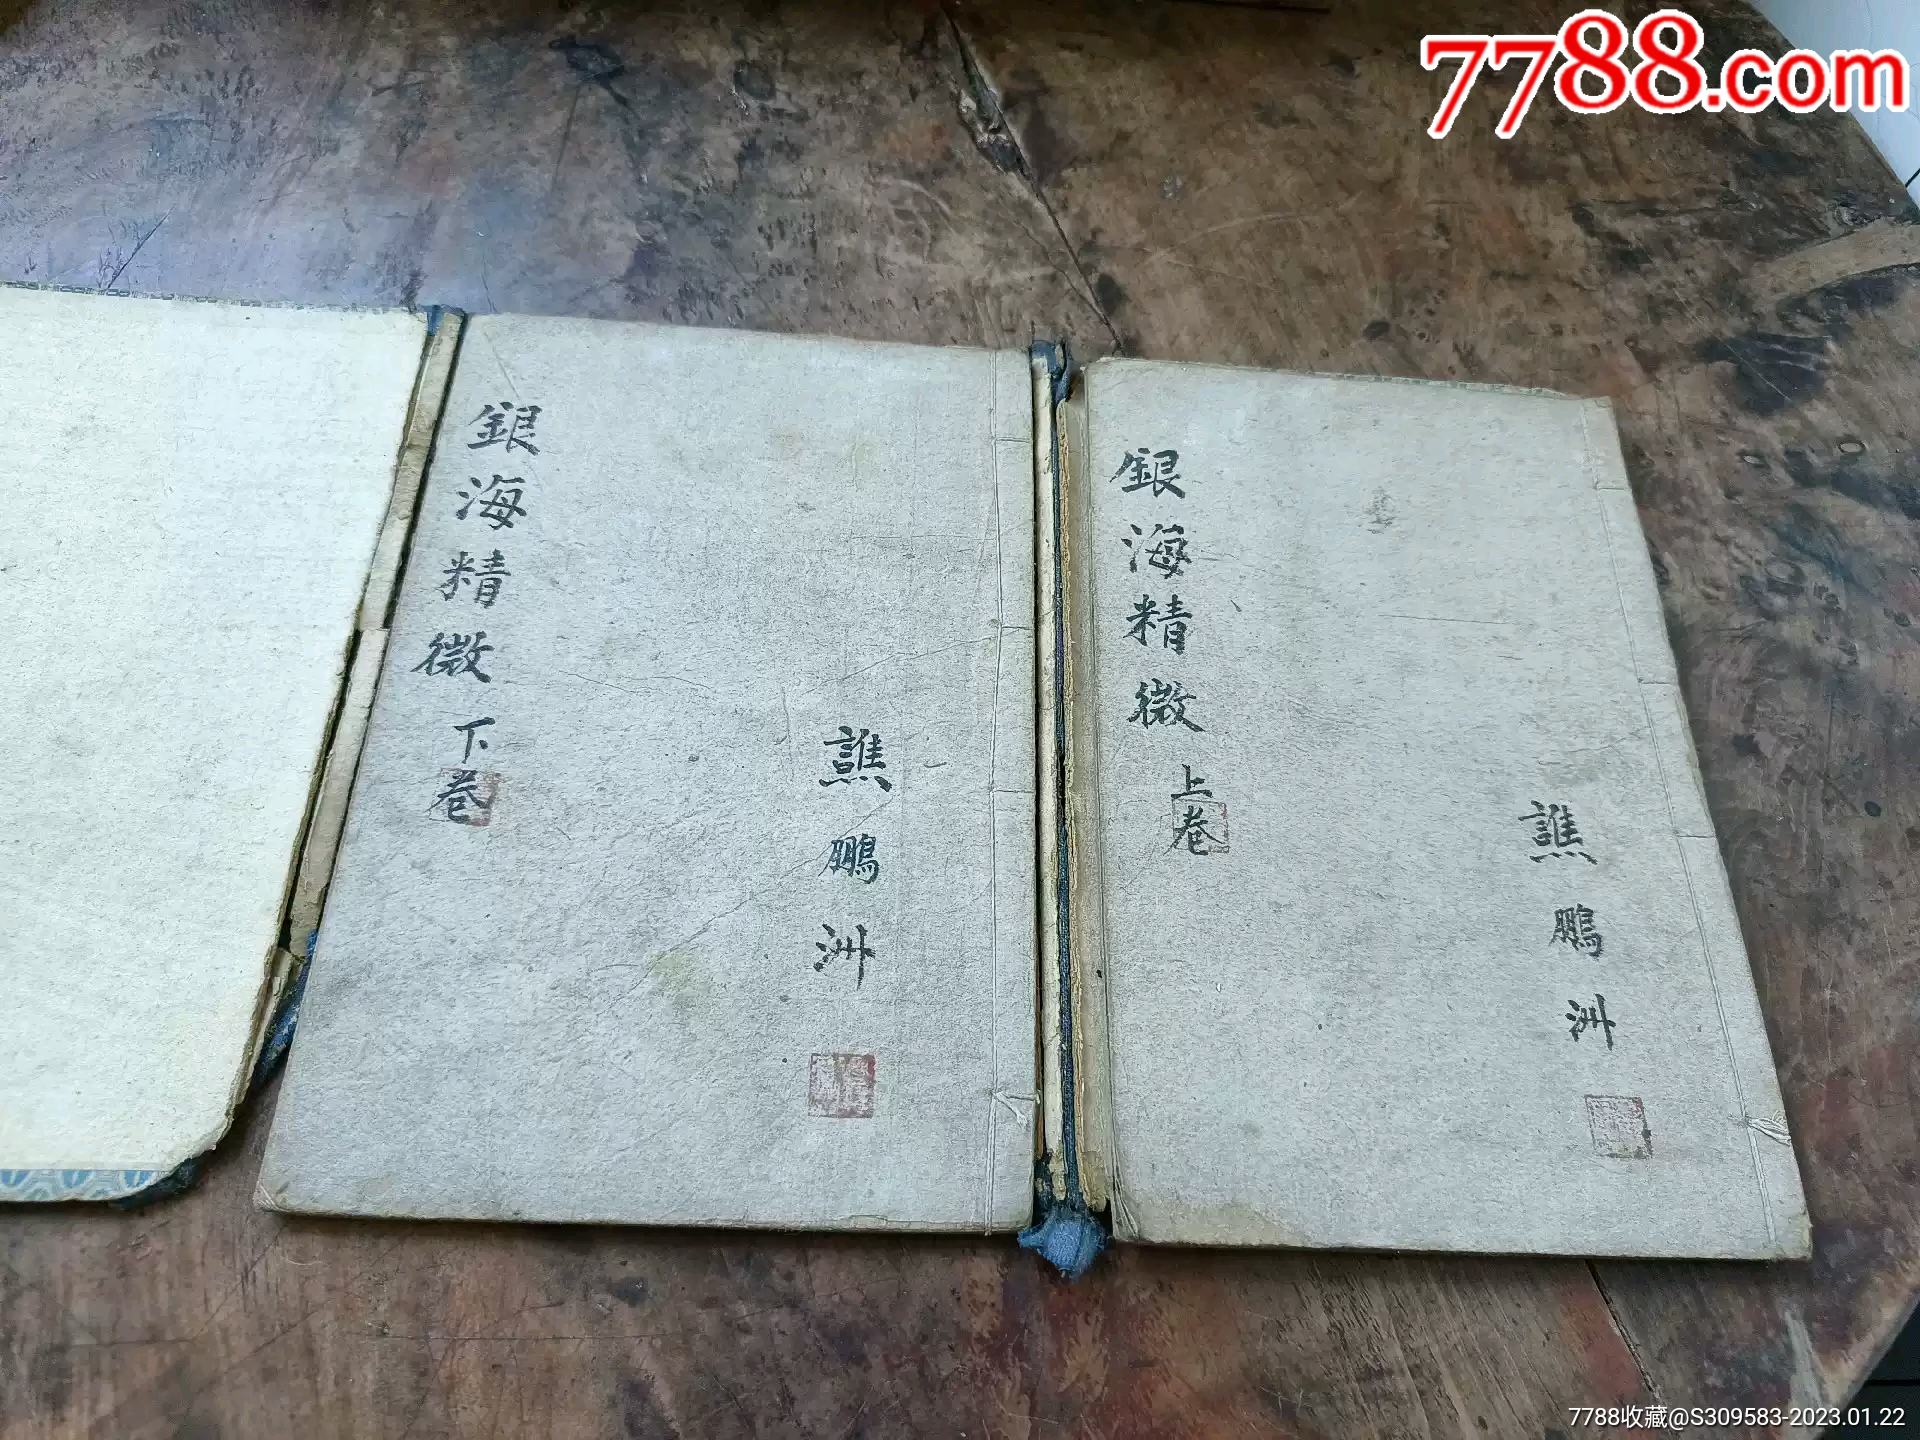 7788.com
銀海精微上卷
譙鵬洲
銀海精微下卷
譙鵬洲
7788收藏@S309583-2023.01.22